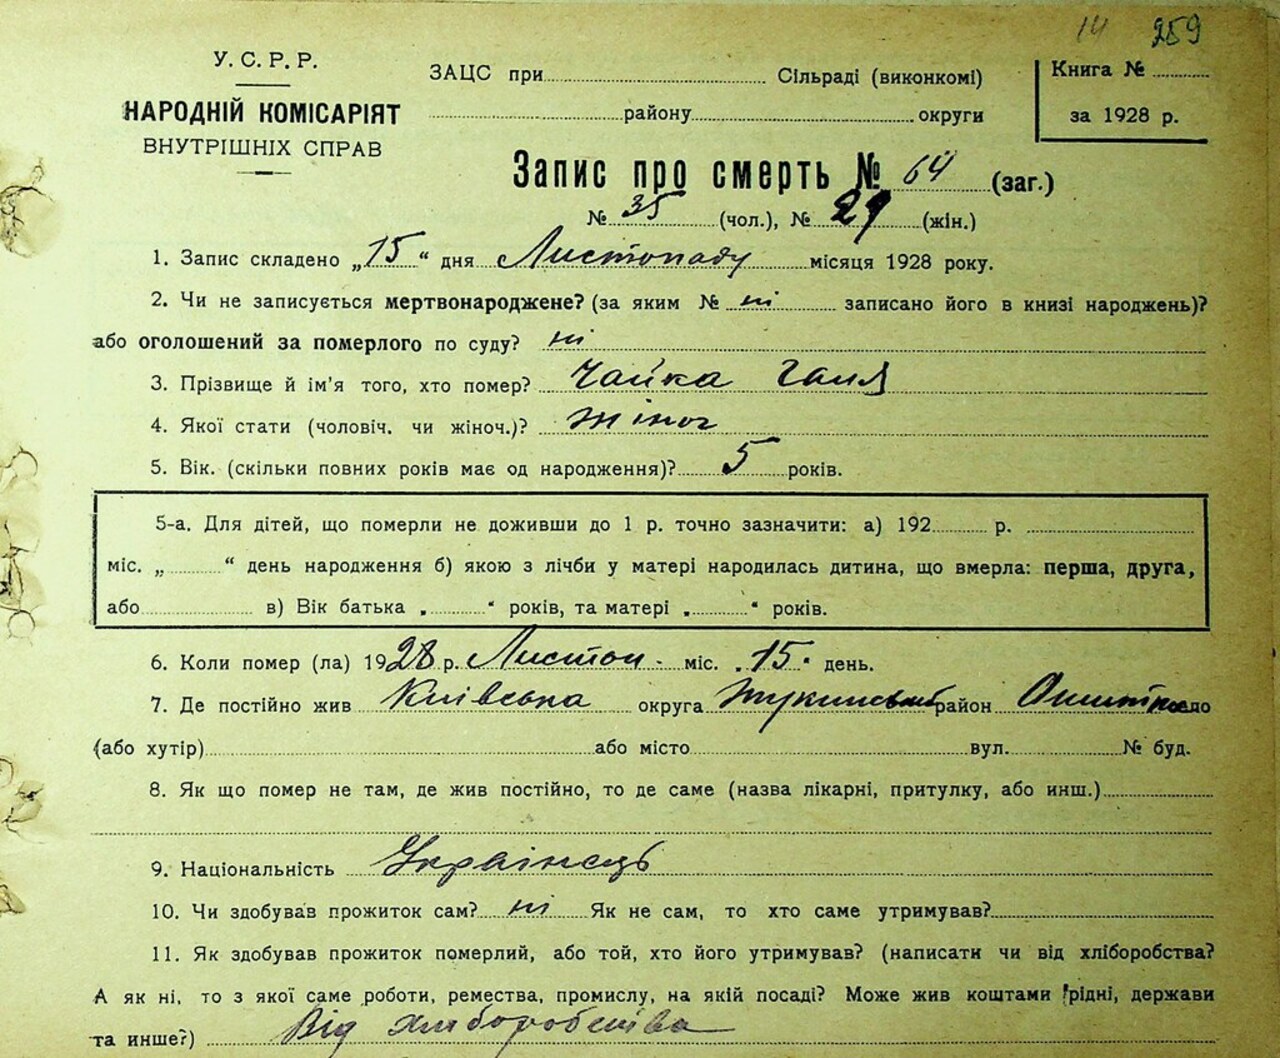 14 259
У. С. Р. Р.
НАРОДНІЙ КОМІСАРІЯТ
ВНУТРІШНІХ СПРАВ
ЗАЦС при Сільраді (виконкомі)
району округи
Книга №
за 1928 р.
Запис про смерть № 64 (заг.)
№ 35 (чол.), № 29 (жін.)
1. Запис складено „15“ дня Листопаду місяця 1928 року.
2. Чи не записується мертвонароджене? (за яким № ні записано його в книзі народжень)?
або оголошений за померлого по суду? ні
3. Прізвище й ім'я того, хто помер? Чайка Галя
4. Якої стати (чоловіч. чи жіноч.)? жіноч
5. Вік. (скільки повних років має од народження)? 5 років.
5-а. Для дітей, що померли не доживши до 1 р. точно зазначити: а) 192 р.
міс. „ “ день народження б) якою з лічби у матері народилась дитина, що вмерла: перша, друга,
або в) Вік батька „ “ років, та матері „ “ років.
6. Коли помер (ла) 1928 р. Листоп. міс. „15“ день.
7. Де постійно жив Київська округа район село
(або хутір) або місто вул. № буд.
8. Як що помер не там, де жив постійно, то де саме (назва лікарні, притулку, або инш.)
9. Національність Українець
10. Чи здобував прожиток сам? ні Як не сам, то хто саме утримував?
11. Як здобував прожиток померлий, або той, хто його утримував? (написати чи від хліборобства?
А як ні, то з якої саме роботи, ремества, промислу, на якій посаді? Може жив коштами рідні, держави
та инше?) Від хліборобства